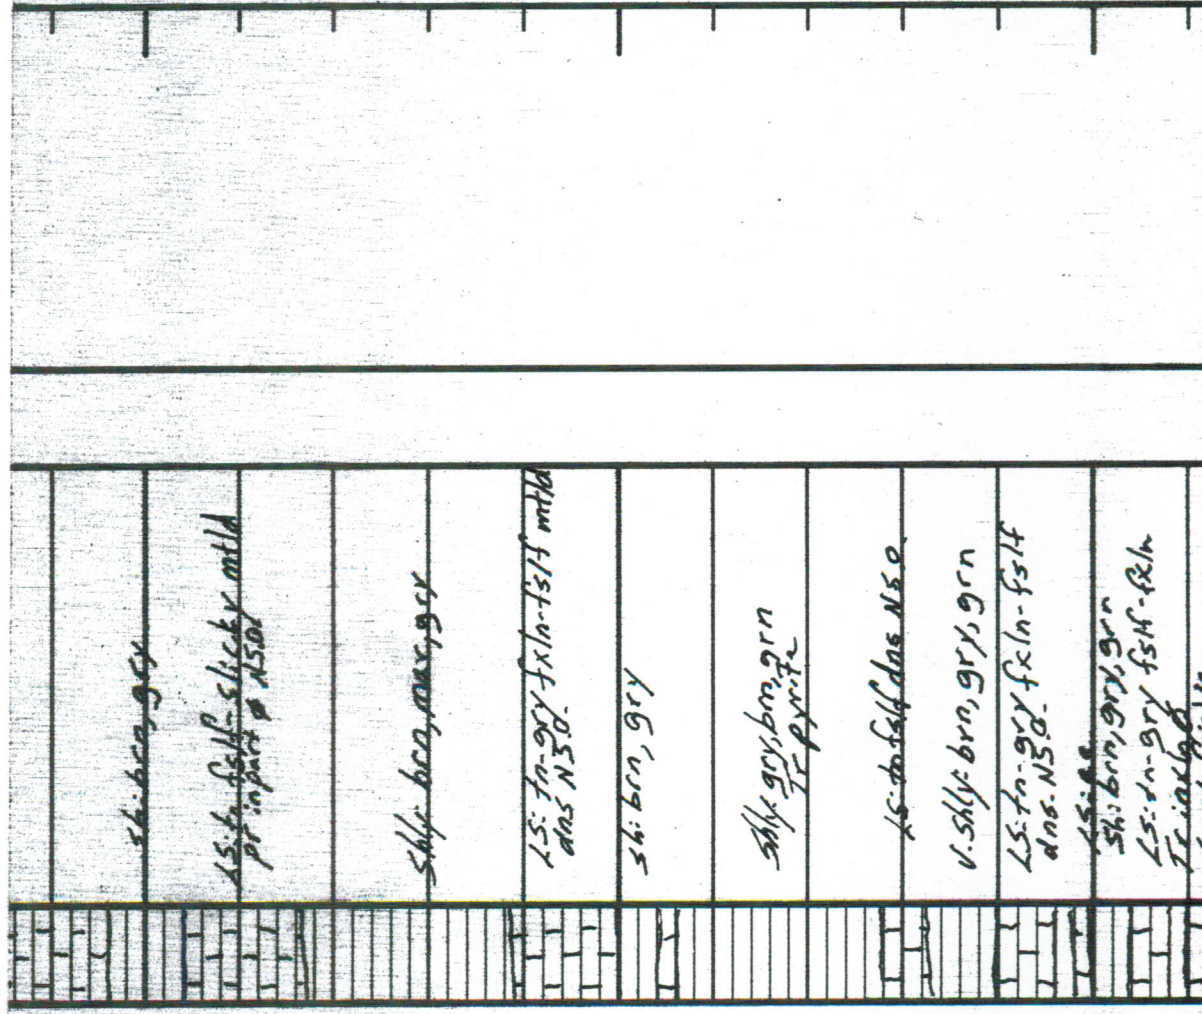 sh: brn, gry
LS: tn fslf - slicky mtld
pr in part ø NSO.
Shly: brn, mar, gry
LS: tn-gry fxln-fslf mtld
dns NSO.
sh: brn, gry
Shly: gry, brn, grn
Tr pyrite
LS: tn fslf dns NSO.
V. Shly: brn, gry, grn
LS: tn-gry fxln-fslf
dns. NSO.
LS:
Sh: brn, gry, grn
LS: tn-gry fslf-fxln
Tr